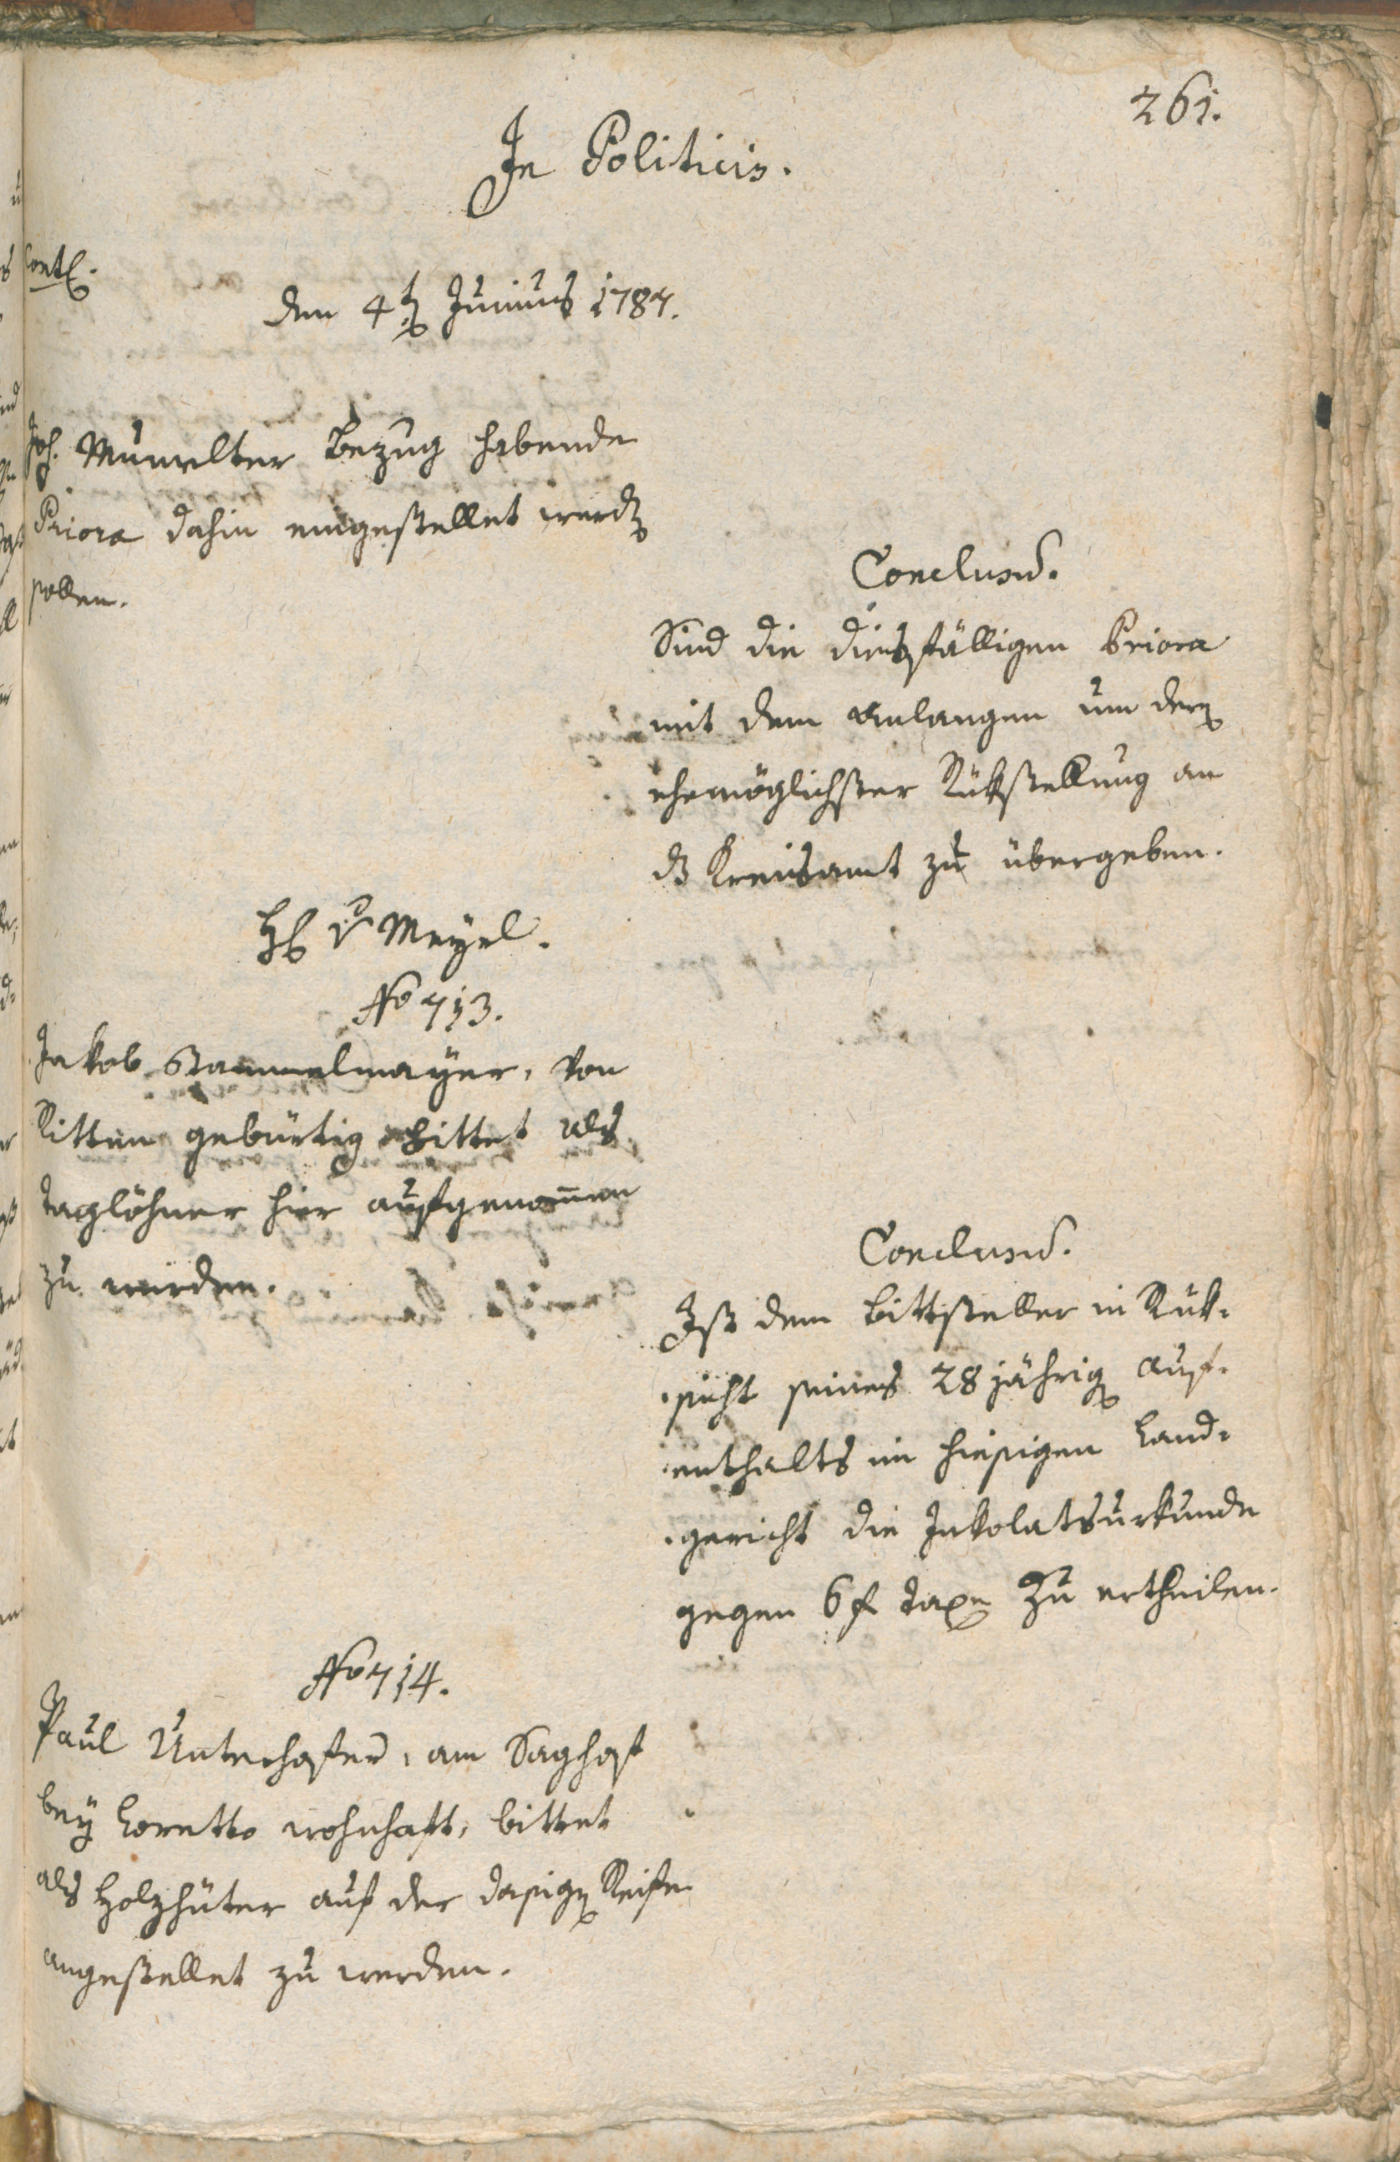 261.
In Politicis.
Cont.
den 4t. Junius 1787.
Joh. Mumelter Bezug habende
Priora dahin eingestellet werden
sollen.
Conclusum.
Sind die diesfälligen Priora
mit dem Anlangen um deren
ehemöglichster Rükstellung an
das Kreisamt zu übergeben.
H. v Menzel.
No 713.
Jakob Stammelmayer, von
Ritten gebürtig bittet als
Taglöhner hier aufgenommen
zu werden.
Conclusum.
Ist dem Bittsteller in Rük-
sicht seines 28 jährigen Auf-
enthalts im hiesigen Land-
gericht die Inkolatsurkunde
gegen 6 f Taxe zu ertheilen.
No 714.
Paul Unterhofer, am Saghof
bey Loretto wohnhaft, bittet
als Holzhüter auf der dasigen Reife
angestellet zu werden.